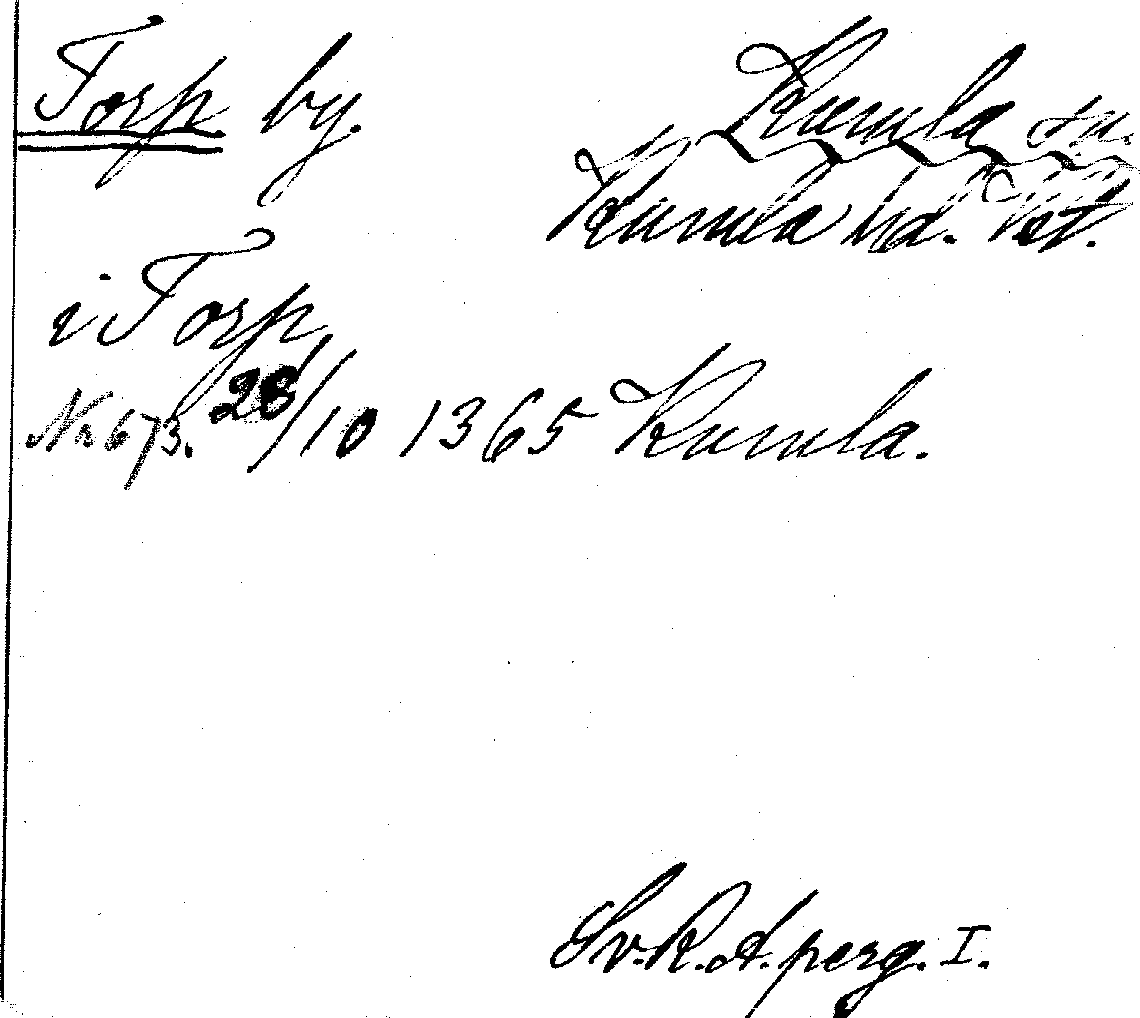 Torp by.
Kumla sn.
Kumla hd. Vst.
i Torp
Nr 673. 28/10 1365 Kumla.
Sv. R. A. perg. I.